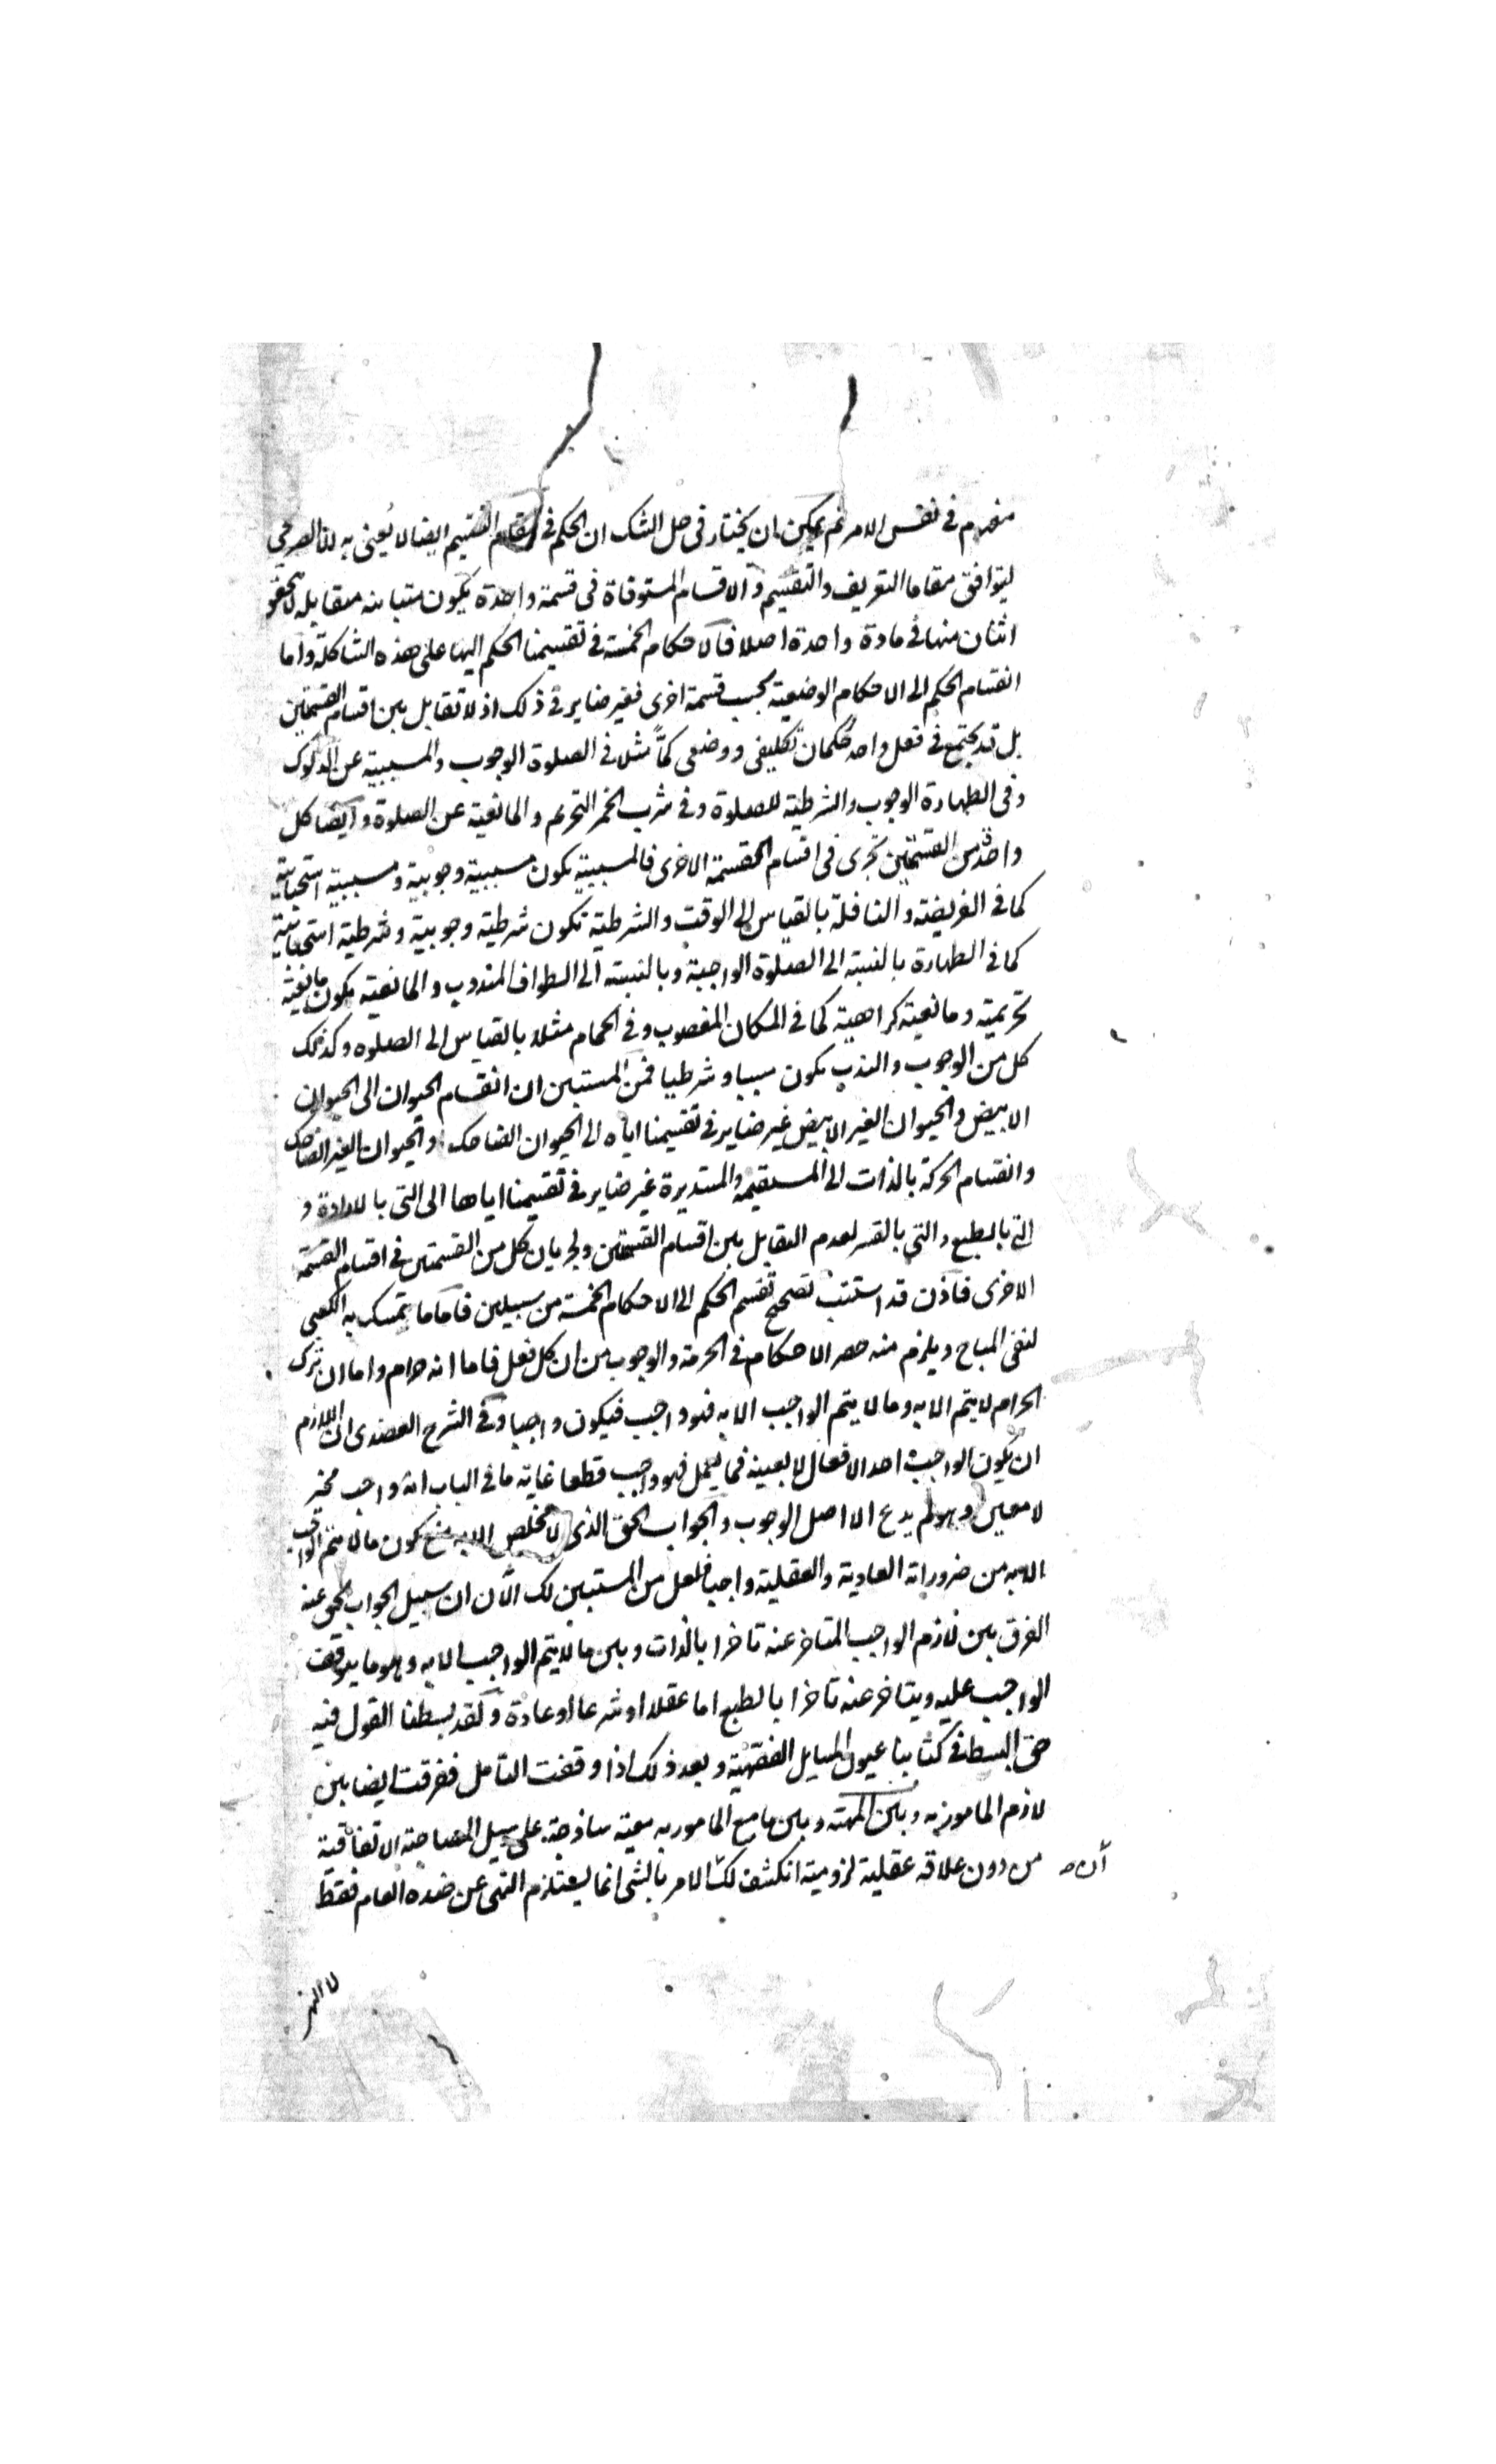 منصرم في نفس الامر ثم يمكن ان يختار في حل الشك ان الحكم في مقام التقسيم ايضا لا يعنى به الا الصريحي
ليتوافق مقاما التعريف والتقسيم والاقسام المستوفاة في قسمة واحدة يكون متباينه متقابله لا يجتمع
اثنان منها في مادة واحدة اصلا فالاحكام الخمسة في تقسيمنا الحكم اليها على هذه الشاكلة واما
انقسام الحكم الى الاحكام الوضعية بحسب قسمة اخرى فغير ضاير في ذلك اذ لا تقابل بين اقسام القسمتين
بل قد يجتمع في فعل واحد حكمان تكليفي ووضعي كما مثلا في الصلوة الوجوب والمسببية عن الدلوك
وفي الطهارة الوجوب والشرطية للصلوة وفي شرب الخمر التحريم والمانعية عن الصلوة وايضا كل
واحدة من القسمتين تجرى في اقسام القسمة الاخرى فالمسببية تكون مسببية وجوبية ومسببية استحبابية
كما في الفريضة والنافلة بالقياس الى الوقت والشرطية تكون شرطية وجوبية وشرطية استحبابية
كما في الطهارة بالنسبة الى الصلوة الواجبة وبالنسبة الى الطواف المندوب والمانعية يكون مانعية
تحريمية ومانعية كراهية كما في المكان المغصوب وفي الحمام مثلا بالقياس الى الصلوه وكذلك
كل من الوجوب والندب يكون سببيا وشرطيا فمن المستبين ان انقسام الحيوان الى الحيوان
الابيض والحيوان الغير الابيض غير ضاير في تقسيمنا اياه الى الحيوان الضاحك والحيوان الغير الضاحك
وانقسام الحركة بالذات الى المستقيمة والمستديرة غير ضاير في تقسيمنا اياها الى التي بالارادة و
التي بالطبع والتي بالقسر لعدم التقابل بين اقسام القسمتين ولجريان كل من القسمتين في اقسام القسمة
الاخرى فاذن قد استتب تصحيح تقسيم الحكم الى الاحكام الخمسة من سبيلين فاما ما تمسك به الكعبي
لنفي المباح ويلزم منه حصر الاحكام في الحرمة والوجوب من ان كل فعل فاما انه حرام واما ان ترك
الحرام لا يتم الا به وما لا يتم الواجب الا به فهو واجب فيكون واجبا وفي الشرح العضدى ان اللازم
ان يكون الواجب احد الافعال لا بعينه فما يعمل فهو واجب قطعا غايته ما في الباب انه واجب مخير
لا معين وهو لم يدع الا اصل الوجوب والجواب الحق الذى لا مخلص الا به منع كون ما لا يتم الواجب
الا به من ضروراته العادية والعقلية واجبا فلعل من المستبين لك الآن ان سبيل الجواب الحق عنه
الفرق بين لازم الواجب المتاخر عنه تاخرا بالذات وبين ما لا يتم الواجب الا به وهو ما يتوقف
الواجب عليه ويتاخر عنه تاخرا بالطبع اما عقلا او شرعا او عادة ولقد بسطنا القول فيه
حق البسط في كتابنا عيون المسايل الفقهية وبعد ذلك اذا وقفت التامل ففرقت ايضا بين
لازم المامور به وبين وبين ما مع المامور به معية ساذجة على سبيل المصاحبة الاتفاقية
من دون علاقه عقلية لزومية انكشف لك الامر بالشى انما يستلزم النهى عن ضده العام فقط
أن صـ
لا النهى